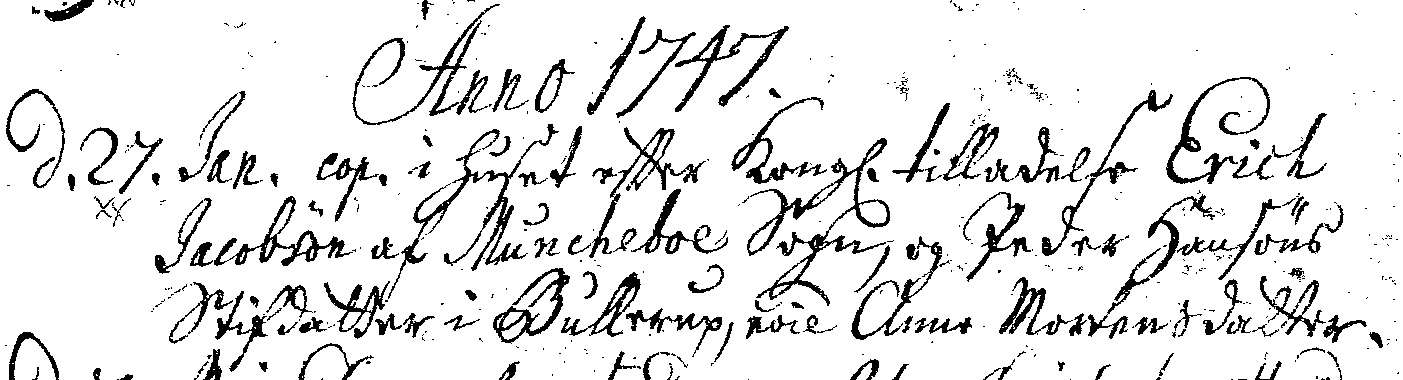 Anno 1747.
D. 27. Jan. cop. i huset efter Kongl. tilladelse Erich
Jacobsön af Muncheboe Sogn, og Peder Hansöns
Stifdatter i Bullerup, Anne Mortensdatter.